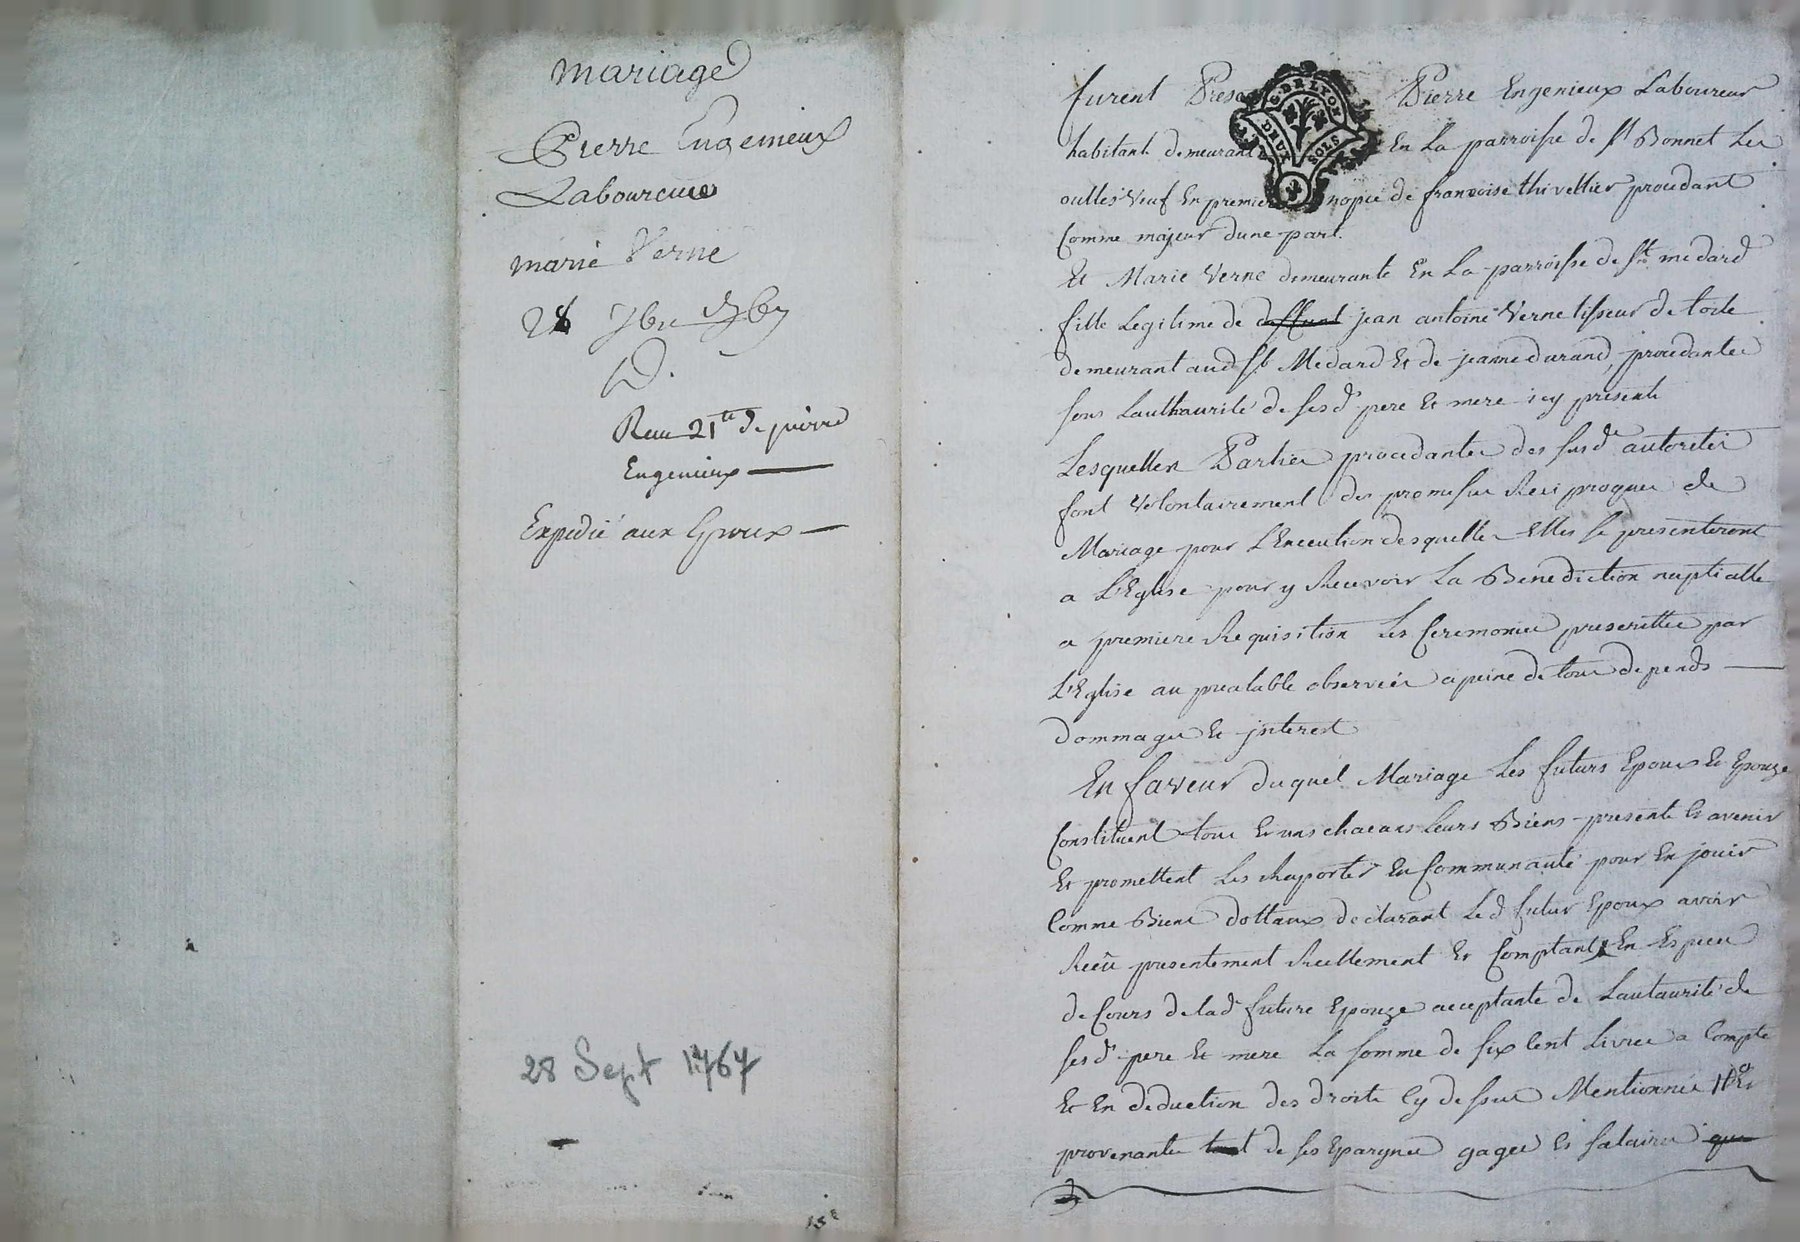 mariage
Pierre Engenieux
Laboureur
marie Verne
28 7bre 1767
Receu 21 lt de pierre
Engenieux
Expedié aux Epoux
28 Sept 1767
15 s
G. DE LYON
DEUX SOLS
furent Presen Pierre Engenieux Laboureur
habitant demeurant En La parroisse de st Bonnet Les
oulles Veuf En premier nopce de francoise thivellier procedant
Comme majeur dune part.
Et Marie Verne demeurante En La parroisse de st medard
fille Legitime de deffunt jean antoine Verne tisseur de toile
demeurant aud st Medard Et de jeanne durand, procedante
sous Lauthaurité de sesd pere Et mere icy presents
Lesquelles Parties procedantes des susd autorites
font Volontairement des promesses Reciproques de
Mariage pour L'Execution desquelles Elles se presenteront
a L'Eglise pour y Recevoir La Benediction nuptialle
a premiere Requisition Les Ceremonies prescrittes par
L'Eglise au prealable observées a peine de tous depends
dommages Et jnterest
En faveur duquel Mariage Les futurs Epoux Et Epouze
Constituent tous Et uns chacuns Leurs Biens presents Et avenir
Et promettent Les Raporter En Communauté pour En jouir
Comme Biens dottaux declarant Led futur Epoux avoir
Receu presentement Reellement Et Comptant En Especes
de Cours de lad future Epouze acceptante de Lautaurité de
sesd pere Et mere La somme de six Cent Livres a Compte
Et En deduction des droits Cy dessus Mentionnés Et
provenante tant de ses Epargnes gages Et salaires que